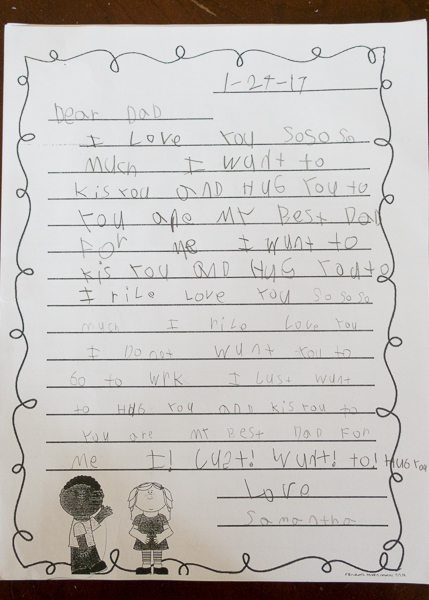 1-27-17
Dear DaD
I Love You SoSo So
Much I wunt to
kis You aND HUG You to
You are MY Best Dad
For me I wunt to
kis You aND HuG You to
I rile Love You So So So
much I rile Love You
I Do not Wunt You to
Go to wrk I Lust wunt
to HUG You and kis You to
You are MY Best Dad For
me I! Lust! Wunt! to! HUG You
Love
Samantha